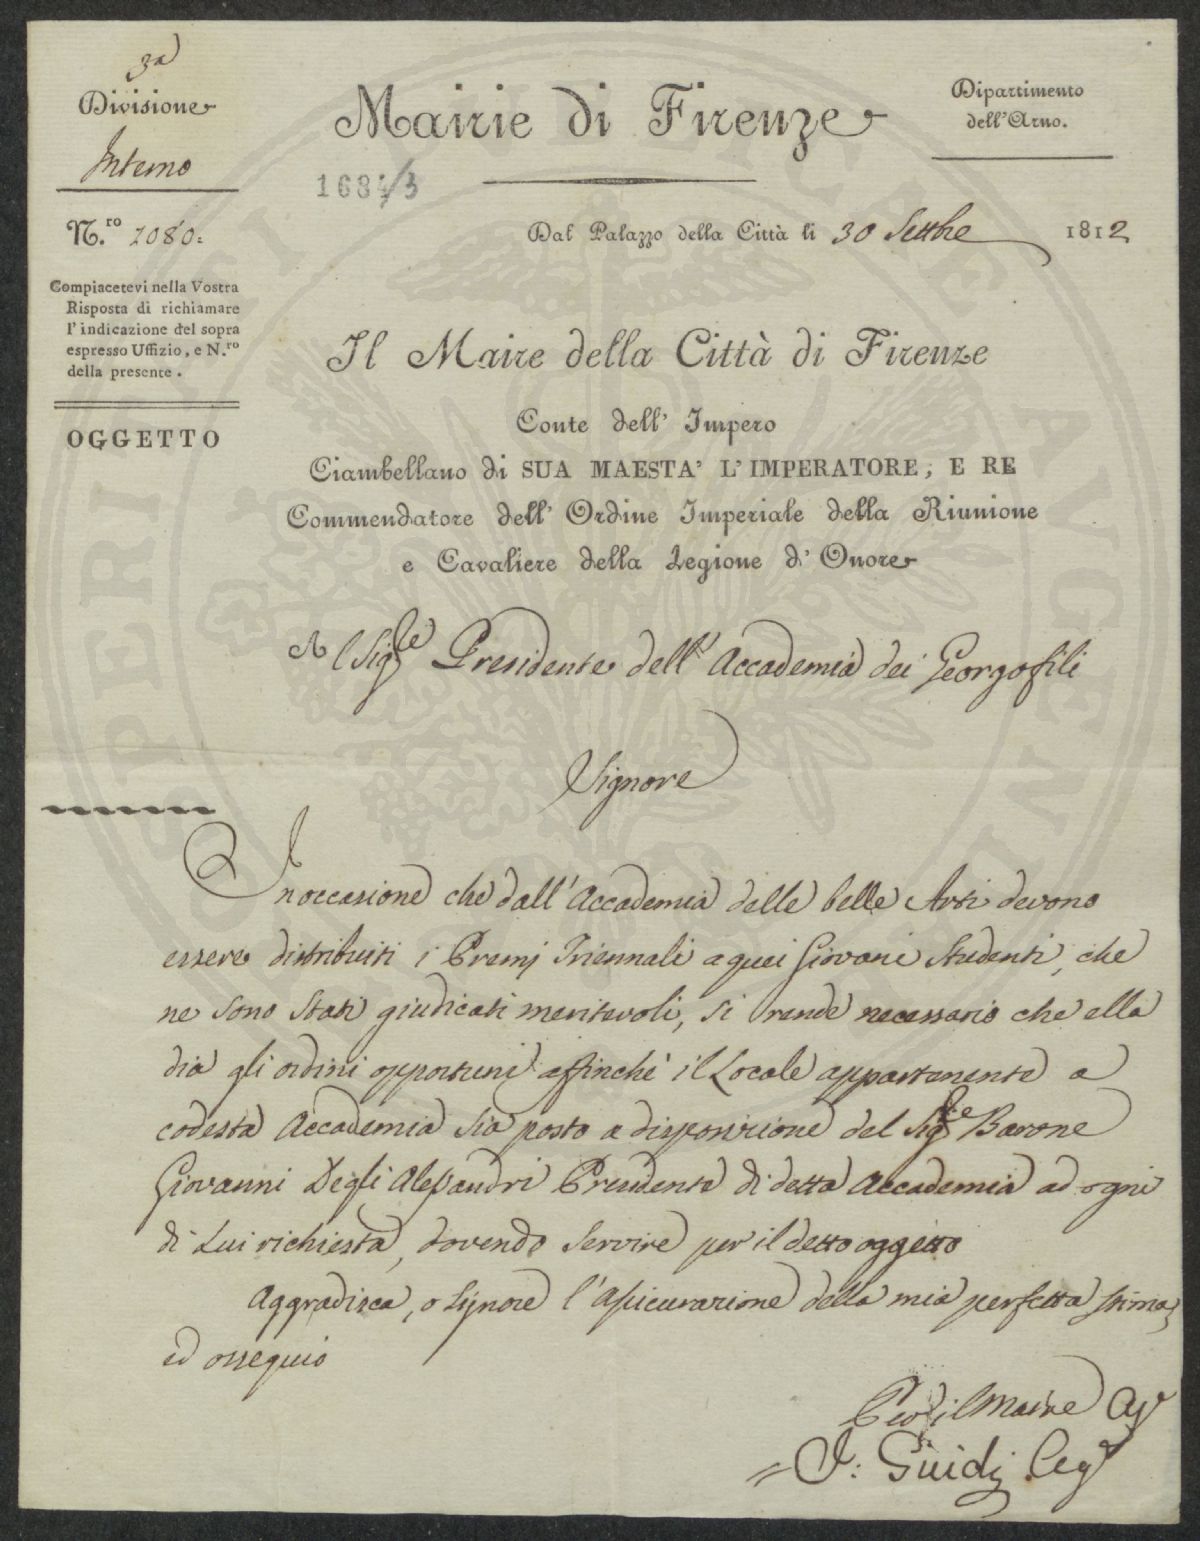 3a
Divisione
Interno
Mairie di Firenze
Dipartimento
dell'Arno.
1684/3
N.ro 2080:
Dal Palazzo della Città li 30 Settbre 1812
Compiacetevi nella Vostra
Risposta di richiamare
l'indicazione del sopra
espresso Uffizio, e N.ro
della presente.
OGGETTO
Il Maire della Città di Firenze
Conte dell' Impero
Ciambellano di SUA MAESTA' L'IMPERATORE, E RE
Commendatore dell' Ordine Imperiale della Riunione
e Cavaliere della Legione d' Onore
Al Sigre Presidente dell' Accademia dei Georgofili
Signore
In occasione che dall'Accademia delle belle Arti devono
essere distribuiti i Premj Triennali a quei Giovani Studenti, che
ne sono stati giudicati meritevoli, si rende necessario che ella
dia gli ordini opportuni affinchè il Locale appartenente a
codesta Accademia sia posto a disposizione del Sigre Barone
Giovanni Degli Alessandri Presidente di detta Accademia ad ogni
di Lui richiesta, dovendo servire per il detto oggetto
Aggradisca, o Signore l'assicurazione della mia perfetta stima,
ed ossequio
il Maire
Guidi